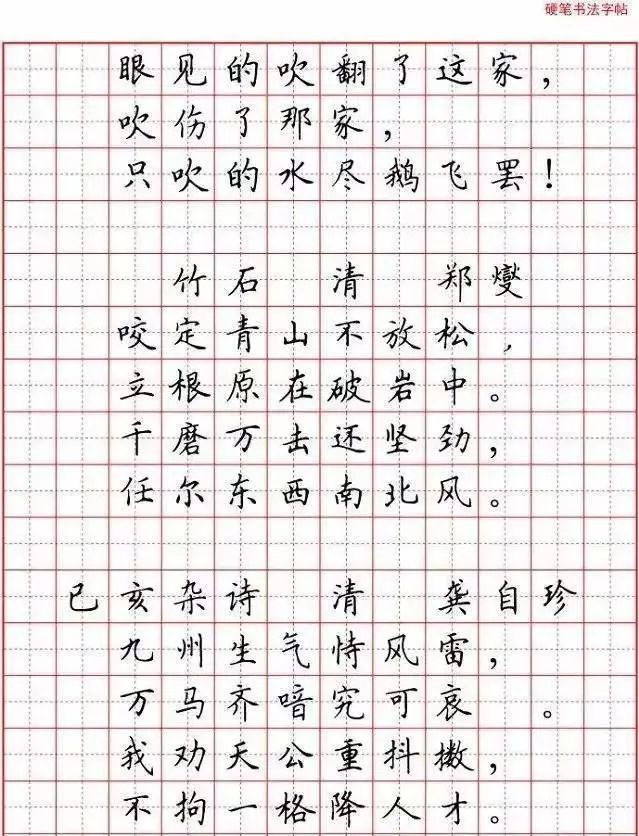 硬笔书法字帖
眼见的吹翻了这家，
吹伤了那家，
只吹的水尽鹅飞罢！
竹石 清 郑燮
咬定青山不放松，
立根原在破岩中。
千磨万击还坚劲，
任尔东西南北风。
已亥杂诗 清 龚自珍
九州生气恃风雷，
万马齐喑究可哀 。
我劝天公重抖擞，
不拘一格降人才。